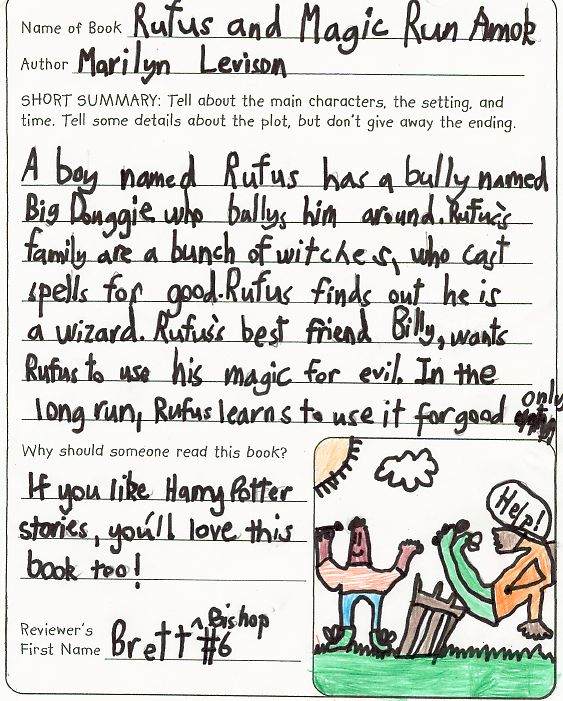 Name of Book Rufus and Magic Run Amok
Author Marilyn Levison
SHORT SUMMARY: Tell about the main characters, the setting, and
time. Tell some details about the plot, but don't give away the ending.
A boy named Rufus has a bully named
Big Douggie who bullys him around. Rufus's
family are a bunch of witches, who cast
spells for good. Rufus finds out he is
a wizard. Rufus's best friend Billy, wants
Rufus to use his magic for evil. In the
long run, Rufus learns to use it for good only
Why should someone read this book?
If you like Harry Potter
stories, you'll love this
book too!
Help!
Reviewer's
First Name Brett Bishop #6